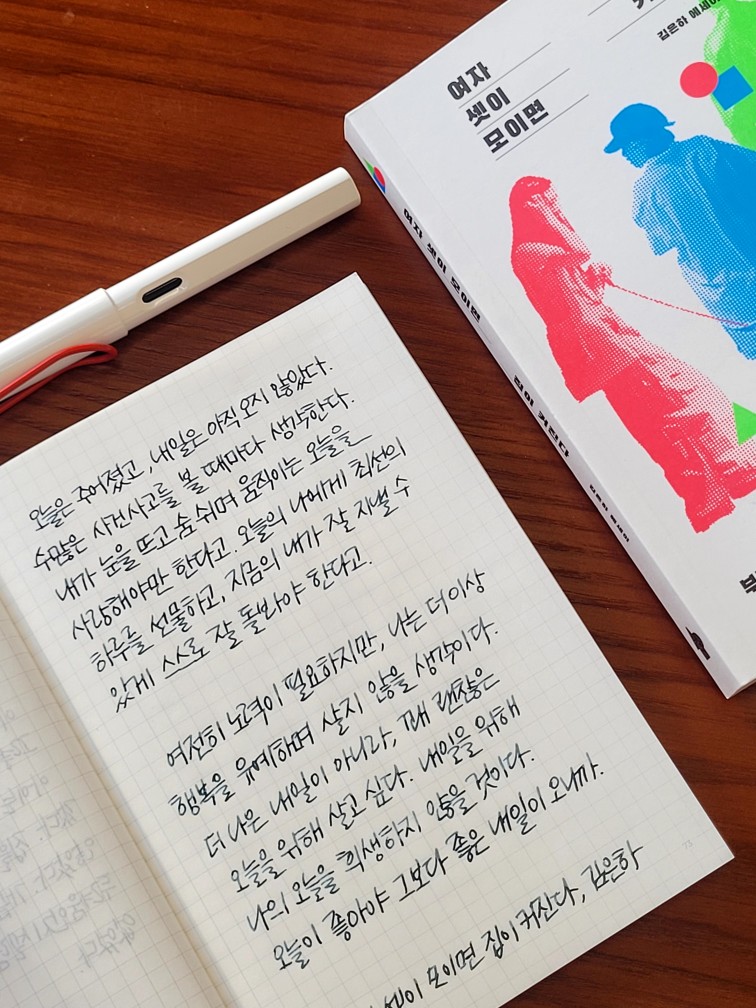 오늘은 주어졌고, 내일은 아직 오지 않았다.
수많은 사건사고를 볼 때마다 생각한다.
내가 눈을 뜨고 숨 쉬며 움직이는 오늘을
사랑해야만 한다고. 오늘의 나에게 최선의
하루를 선물하고, 지금의 내가 잘 지낼 수
있게 스스로 잘 돌봐야 한다고.
여전히 노력이 필요하지만, 나는 더 이상
행복을 유예하며 살지 않을 생각이다.
더 나은 내일이 아니라, 꽤 괜찮은
오늘을 위해 살고 싶다. 내일을 위해
나의 오늘을 희생하지 않을 것이다.
오늘이 좋아야 그보다 좋은 내일이 오니까.
셋이 모이면 집이 커진다, 김은하
73
여자
셋이
모이면
김은하 에세이
여자 셋이 모이면 집이 커진다 김은하 에세이